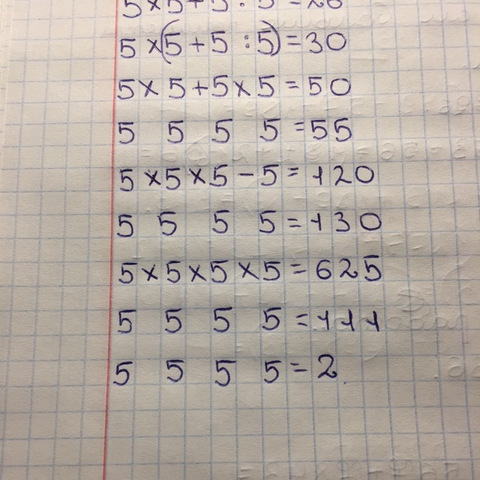 5×5+5:5=26
5×(5+5:5)=30
5×5+5×5=50
5 5 5 5=55
5×5×5-5=120
5 5 5 5=130
5×5×5×5=625
5 5 5 5=111
5 5 5 5=2